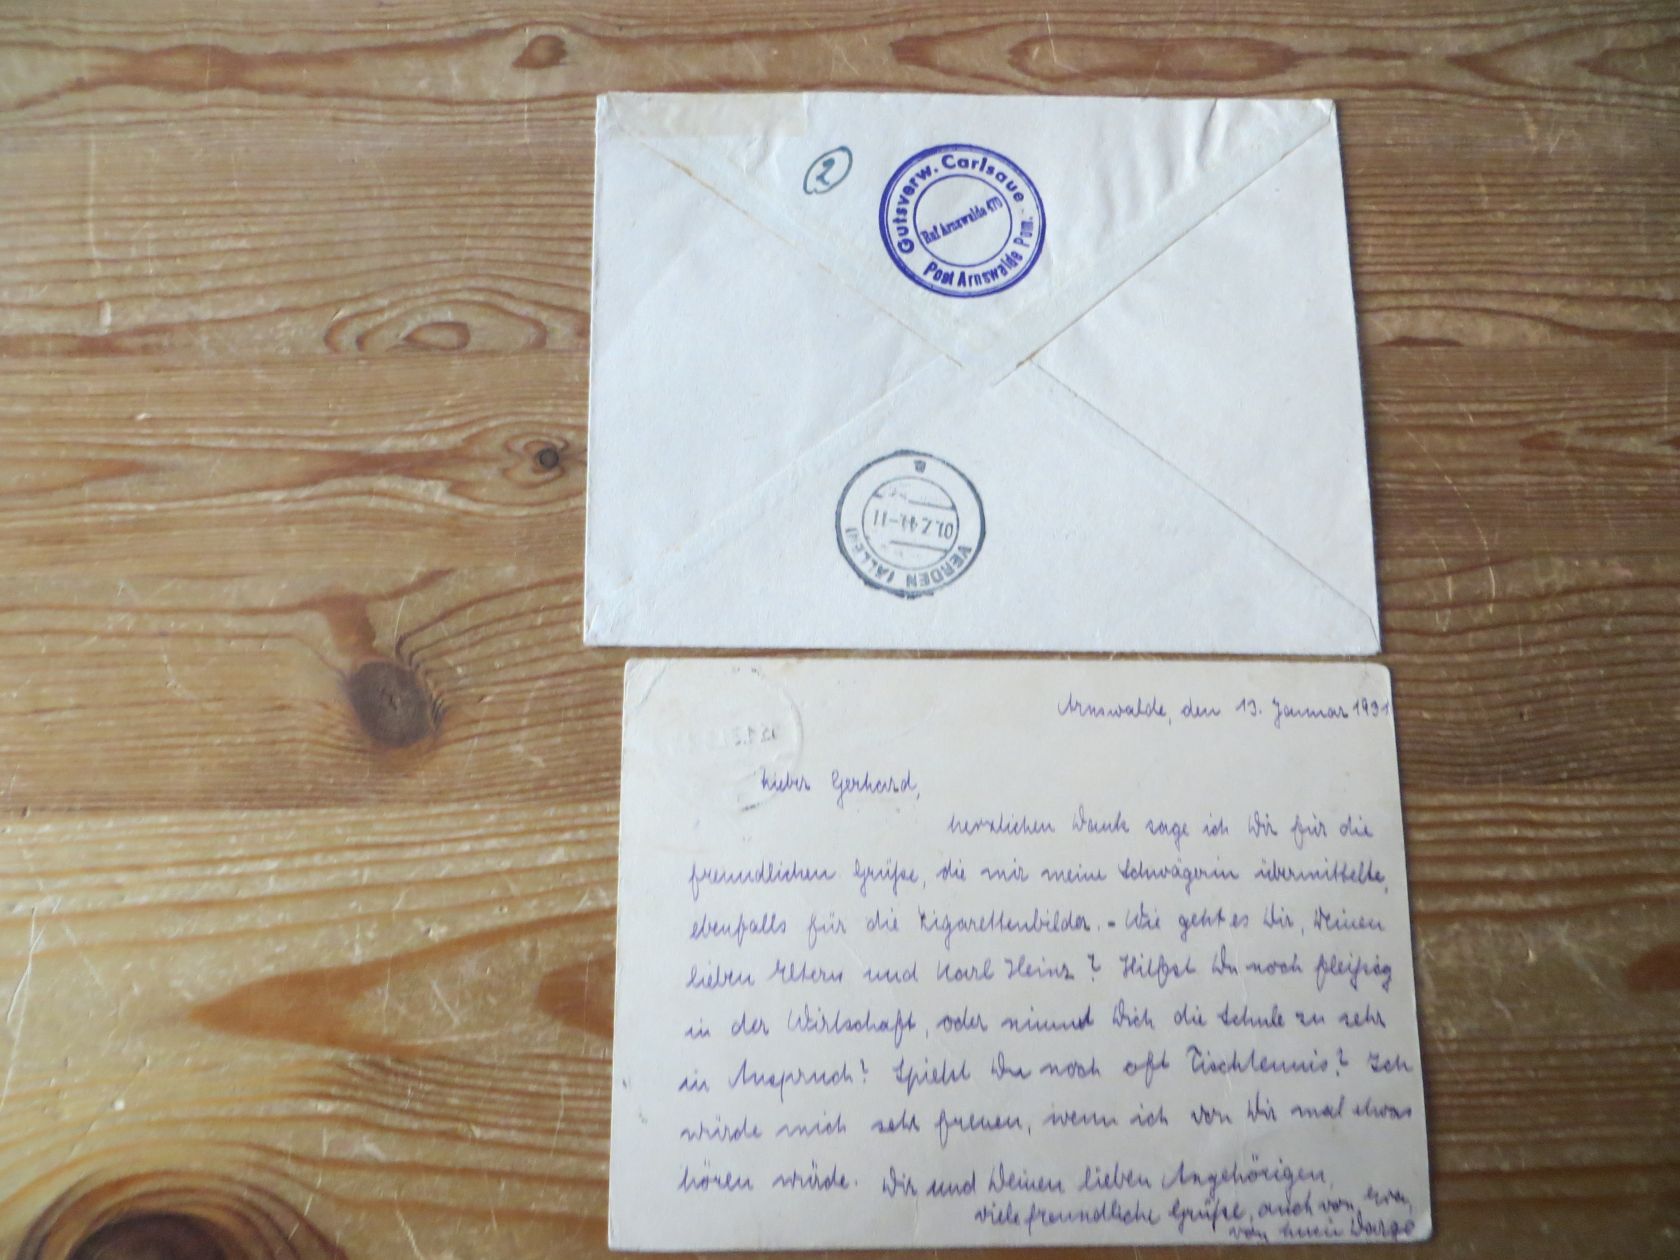 2
Gutsverw. Carlsaue
Ruf Arnswalde 470
Post Arnswalde Pom.
VERDEN (ALLER)
01.7.41-11
a
Arnswalde, den 13. Januar 1931
Lieber Gerhard,
herzlichen Dank sage ich Dir für die
freundlichen Grüße, die mir meine Schwägerin übermittelte,
ebenfalls für die Zigarettenbilder. - Wie geht es Dir, Deinen
lieben Eltern und Karl Heinz? Hilfst Du noch fleißig
in der Wirtschaft, oder nimmt Dich die Schule zu sehr
in Anspruch? Spielst Du noch oft Tischtennis? Ich
würde mich sehr freuen, wenn ich von Dir mal etwas
hören würde. Dir und Deinen lieben Angehörigen,
viele freundliche Grüße, auch von
von